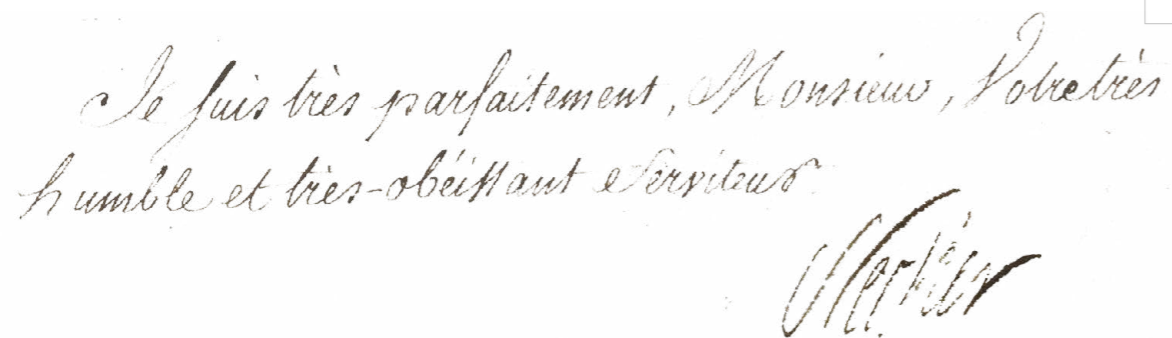 Je suis très parfaitement, Monsieur, Votre très
humble et très-obéissant Serviteur